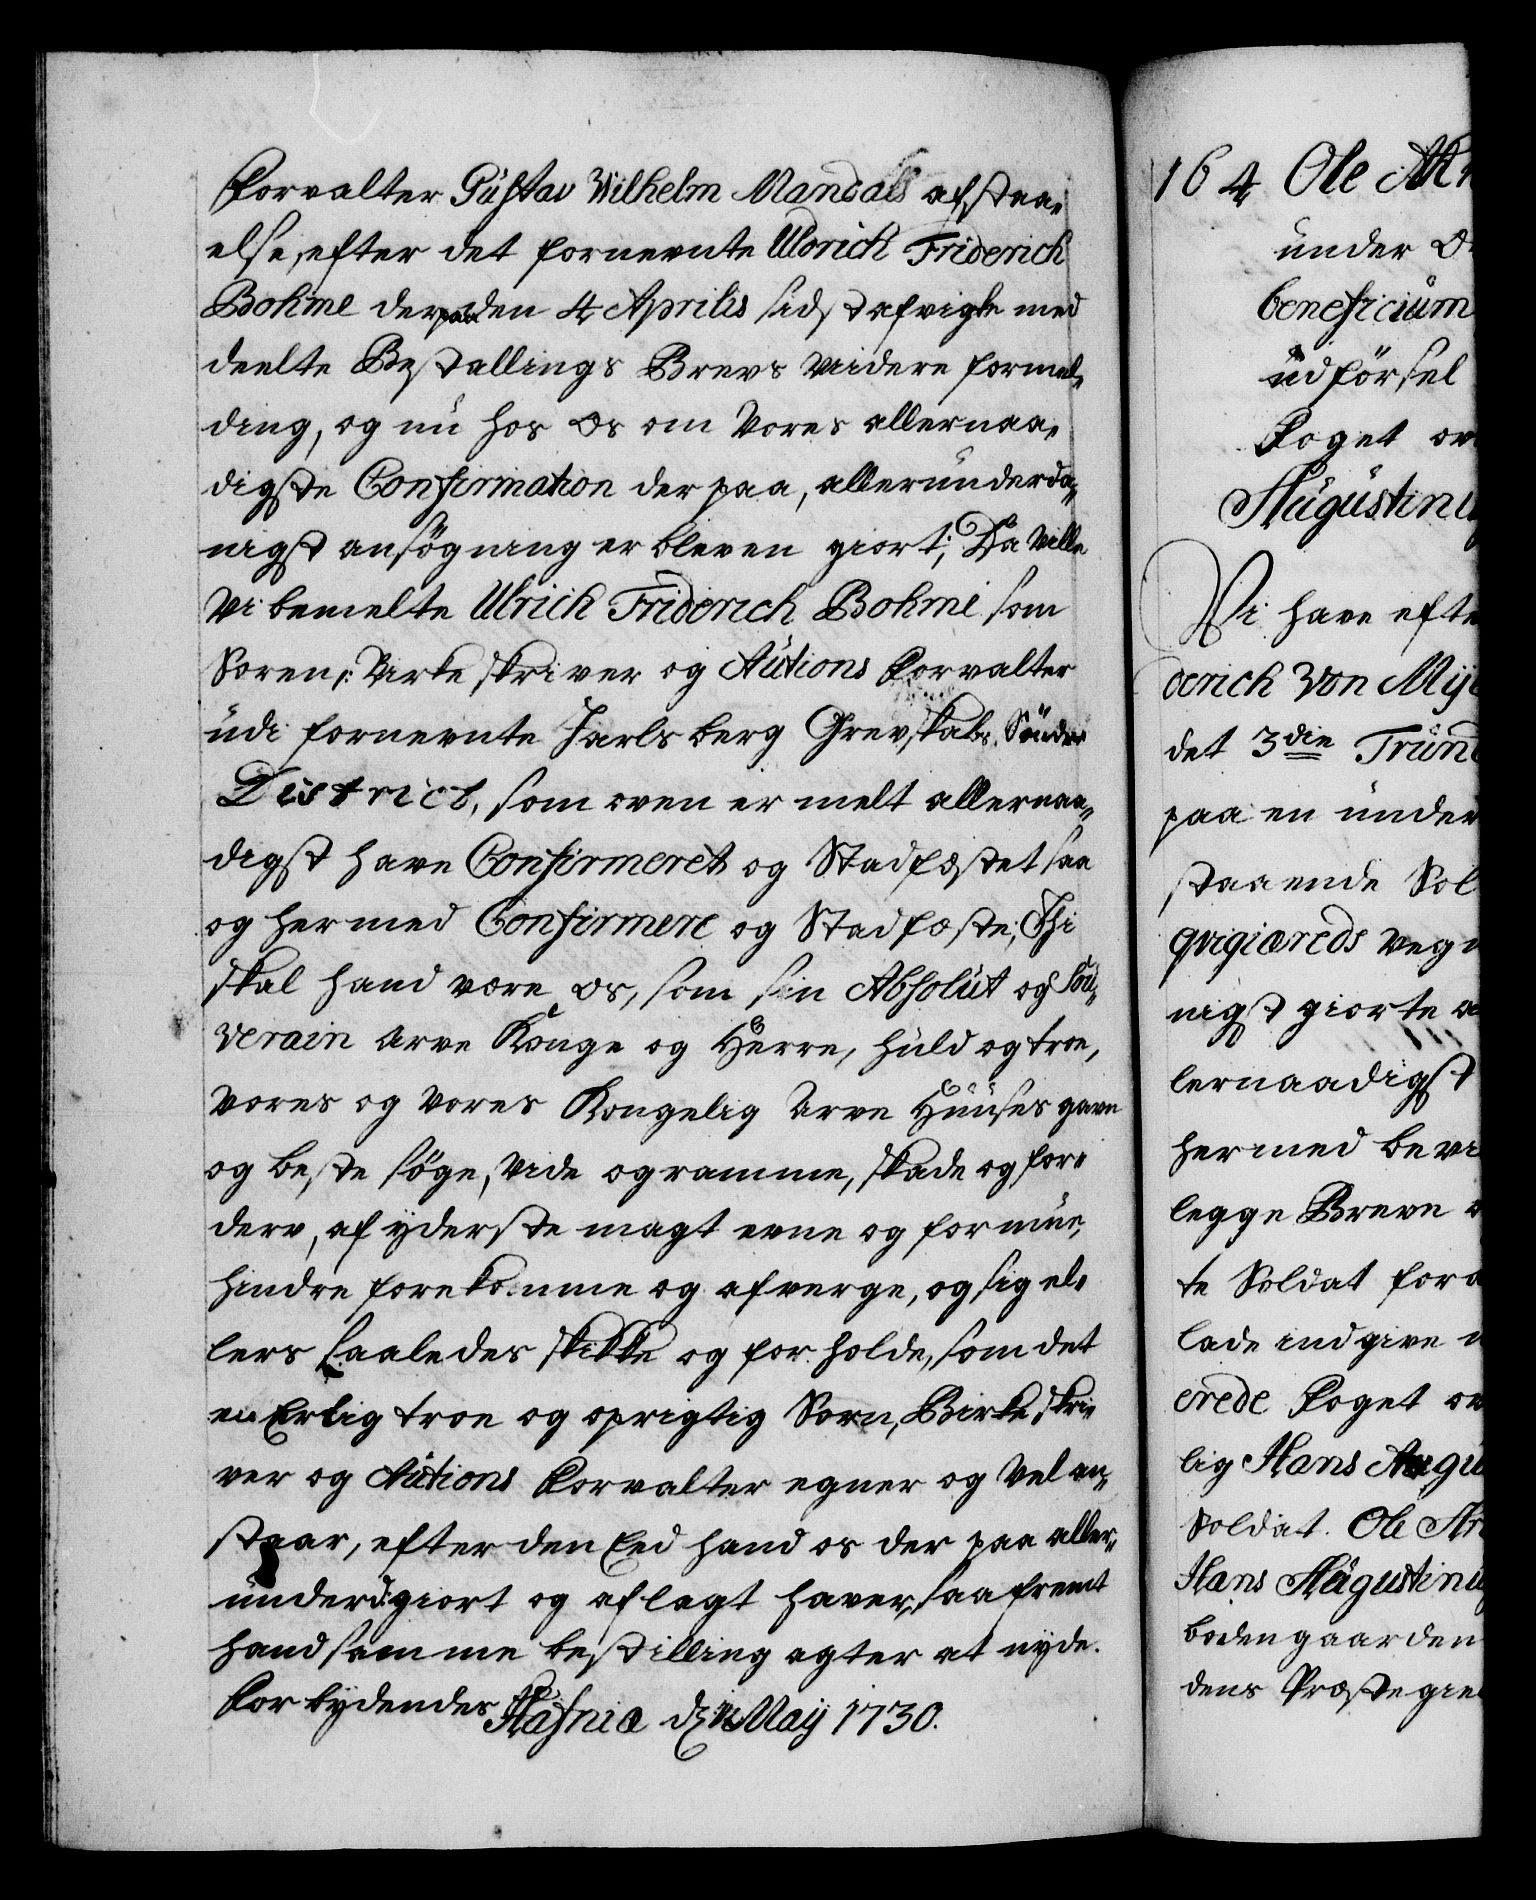 Forvalter Gustav Wilhelm Mandals afstaa-
else, efter det fornevnte Uldrich Friderich
Bohme derpaa den 4 Aprilis sidst afvigte med
deelte Bestallings Brevs viidere formel-
ding, og nu hos os om Vores allernaa-
digste Confirmation der paa, allerunderda-
nigst ansøgning er bleven giort; Da Ville
Vi bemelte Ulrich Friderich Bohme som
Soren-: Birke skriver og Autions Forvalter
udi fornevnte Jarlsberg Grevskabs Sønder
District, som oven er melt allernaa-
digst have Confirmeret og Stadfæstet saa
og hermed Confirmere og Stadfæste; Thi
skal hand være os, som sin Absolut og Sou-
verain Arve Konge og Herre, huld og troe,
Vores og Vores Kongelig Arve Huuses gavn
og beste søge, Vide og ramme, skade og for-
derv, af yderste magt evne og formue,
hindre forekomme og afverge, og sig el-
lers saaledes skikke og forholde, som det
en Erlig troe og oprigtig Sorn, Birke skri-
ver og Autions Forvalter egner og Vel an-
staar, efter den Eed hand os der paa aller-
underd: giort og aflagt haver, saafremt
hand samme bestilling agter at nyde.
Forbydendes Hafniæ d: Maij 1730.
164 Ole
under
beneficium
udførsel
Foget
Augustinu
Vi have efte
derich Von
det 3die
paa en under
staaende Sol
qvigiæreds Vegn
nigst giorte
lernaadigst
hermed bevi
legge Breve
te Soldat for
lade indgive
erede Foget
lig Hans Augu
Soldat Ole
Hans Augustinu
boden gaarden
dens Præstegie